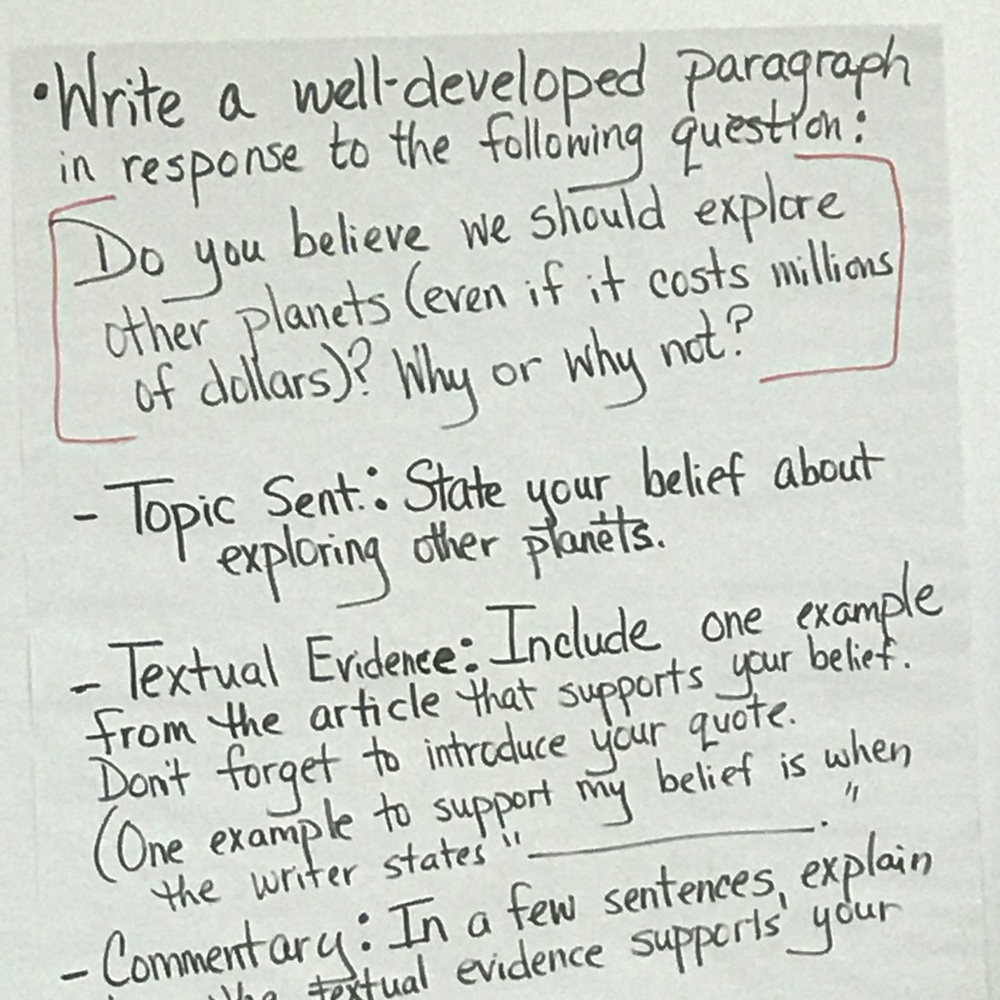 •Write a well-developed paragraph
in response to the following question:
Do you believe we should explore
other planets (even if it costs millions
of dollars)? Why or why not?
- Topic Sent.: State your belief about
exploring other planets.
- Textual Evidence: Include one example
from the article that supports your belief.
Don't forget to introduce your quote.
(One example to support my belief is when
the writer states "__________."
- Commentary: In a few sentences, explain
the textual evidence supports your